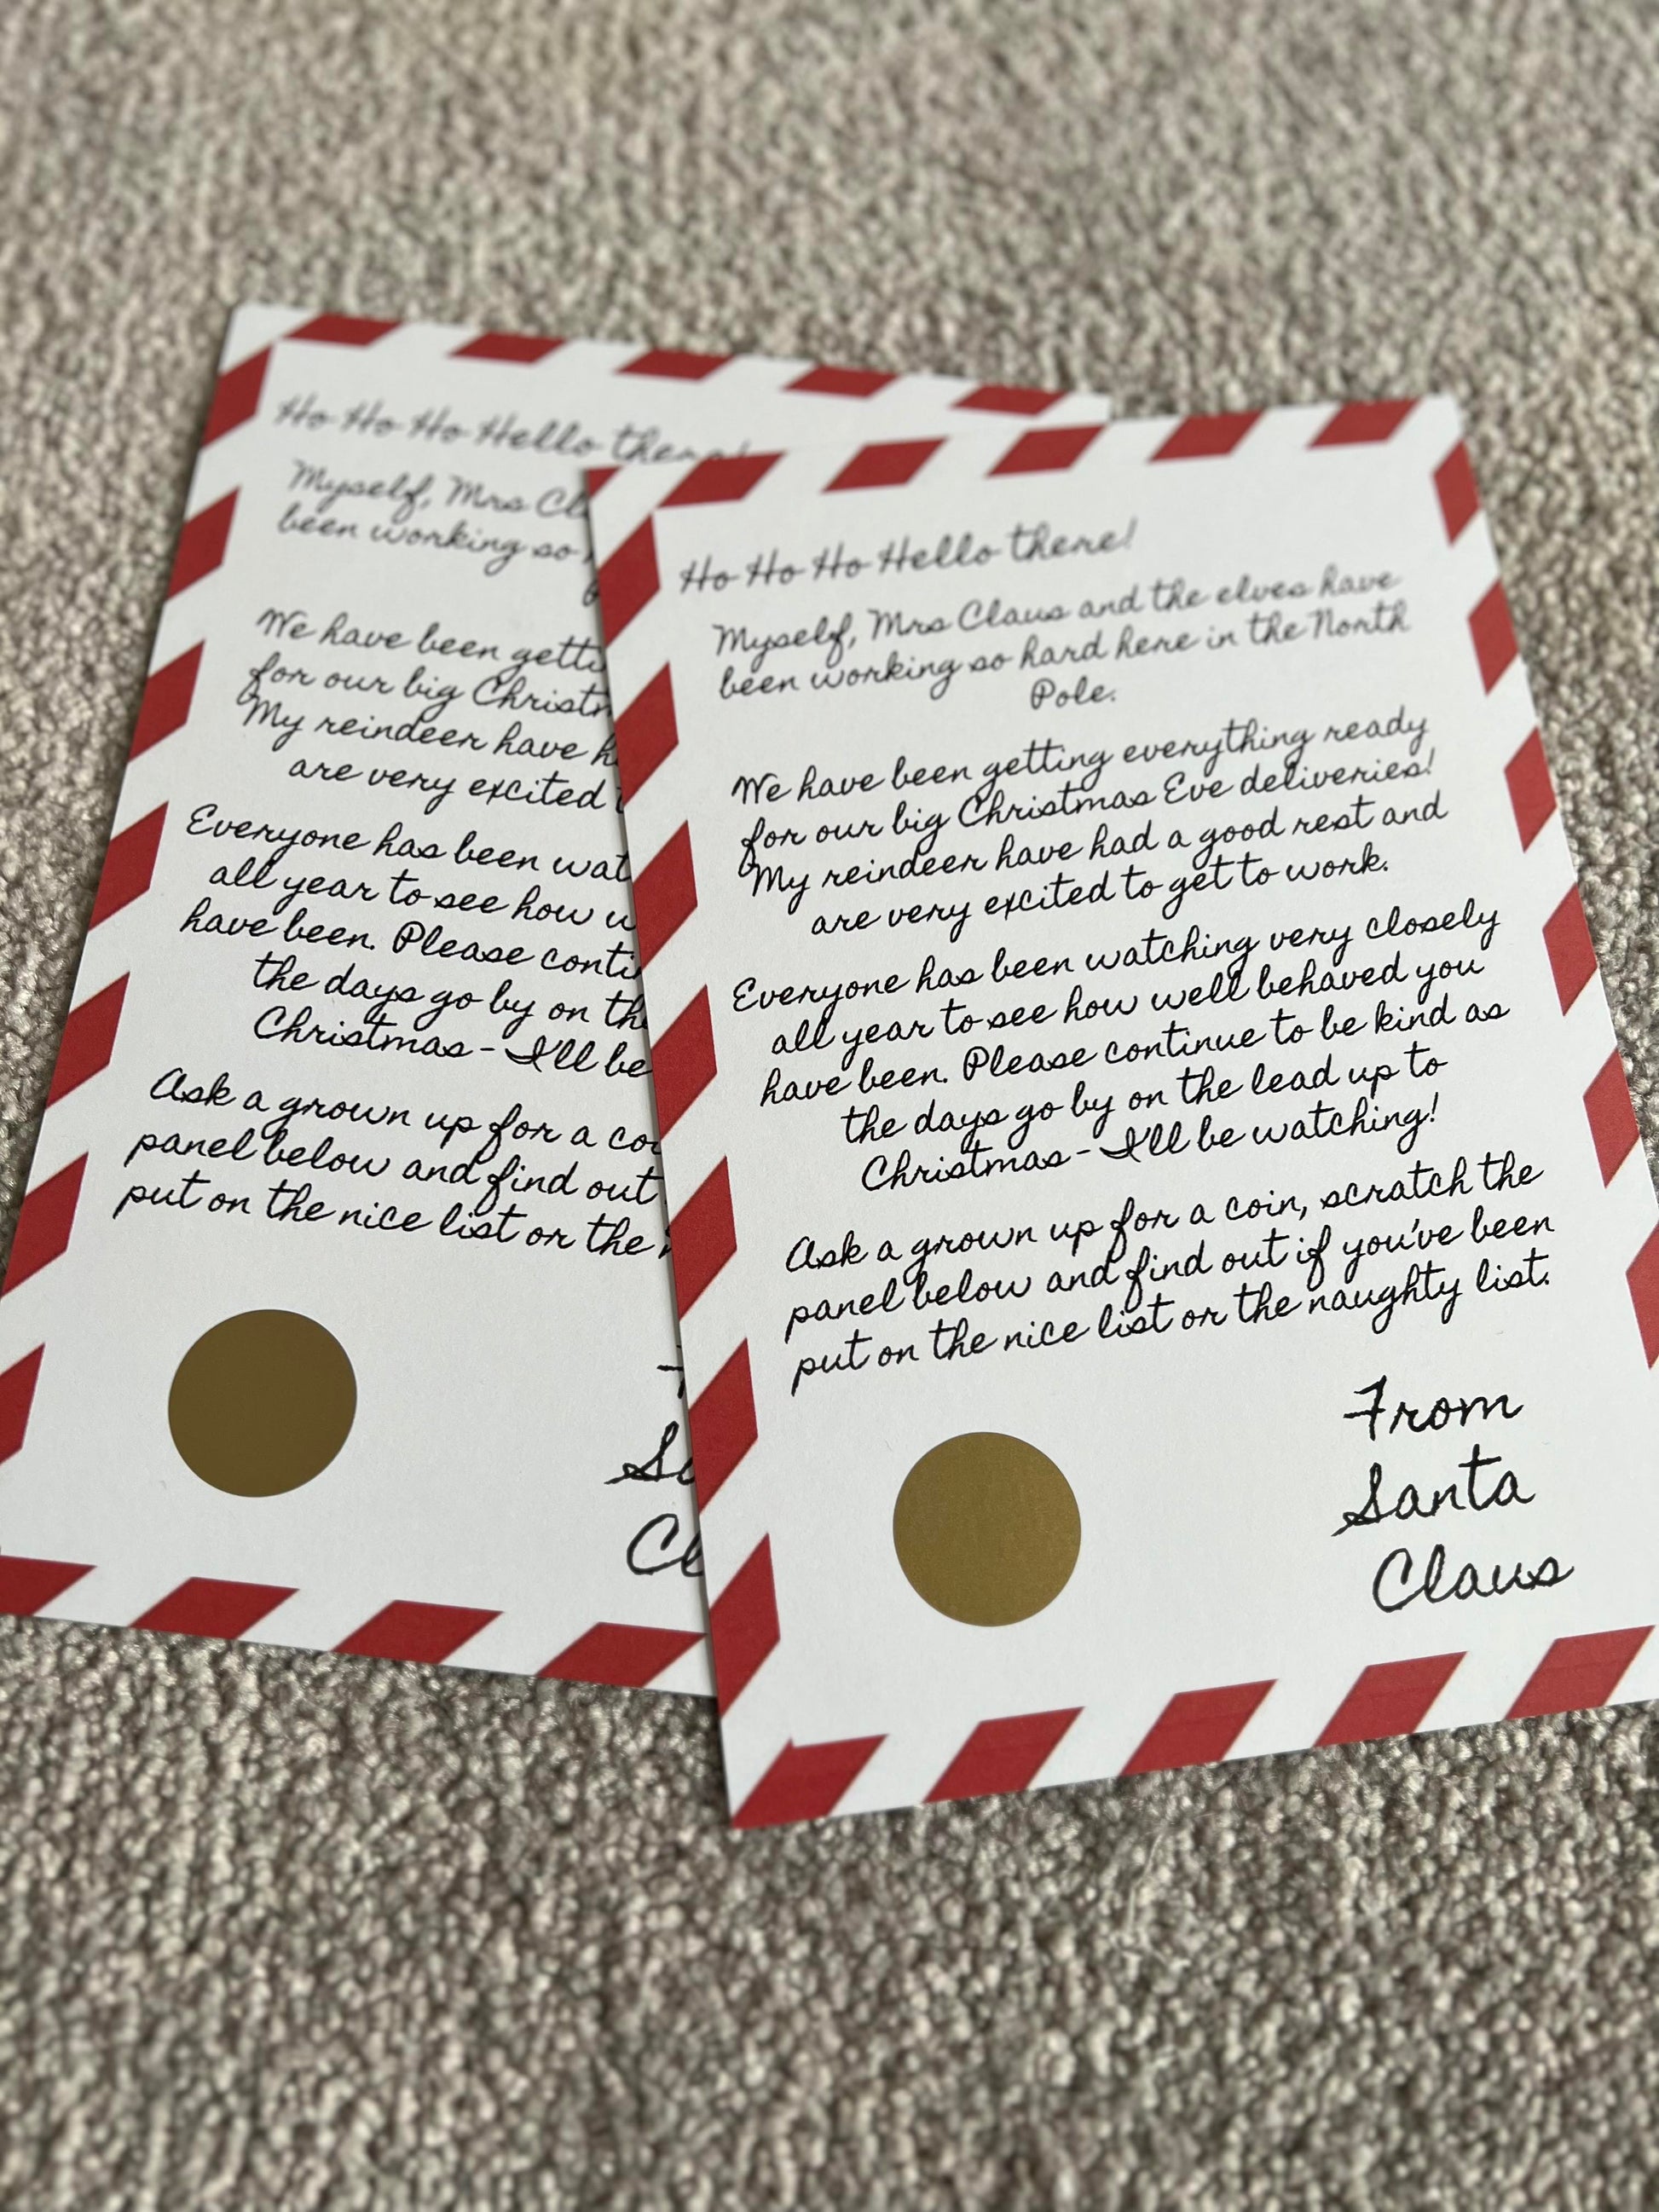 Ho Ho Ho Hello there!
Myself, Mrs
been working so
We have been
for our big
My reindeer have
are very excited
Everyone has been
all year to see how
have been. Please
the days go by on
Christmas - I'll be
Ask a grown up for a
panel below and find out
put on the nice list or the
Ho Ho Ho Hello there!
Myself, Mrs Claus and the elves have
been working so hard here in the North
Pole.
We have been getting everything ready
for our big Christmas Eve deliveries!
My reindeer have had a good rest and
are very excited to get to work.
Everyone has been watching very closely
all year to see how well behaved you
have been. Please continue to be kind as
the days go by on the lead up to
Christmas - I'll be watching!
Ask a grown up for a coin, scratch the
panel below and find out if you've been
put on the nice list or the naughty list.
From
Santa
Claus